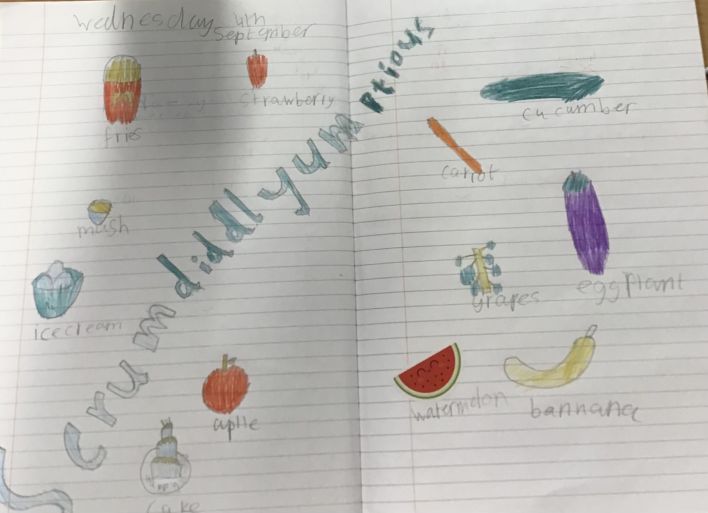 Wednesday 4th
September
fries
strawberry
mash
icecream
Crumdiddlyumptious
aplle
cake
cucumber
carrot
eggplant
grapes
watermelon
bannana